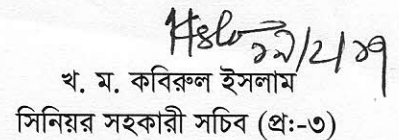 খ. ম. কবিরুল ইসলাম
সিনিয়র সহকারী সচিব (প্র:-৩)